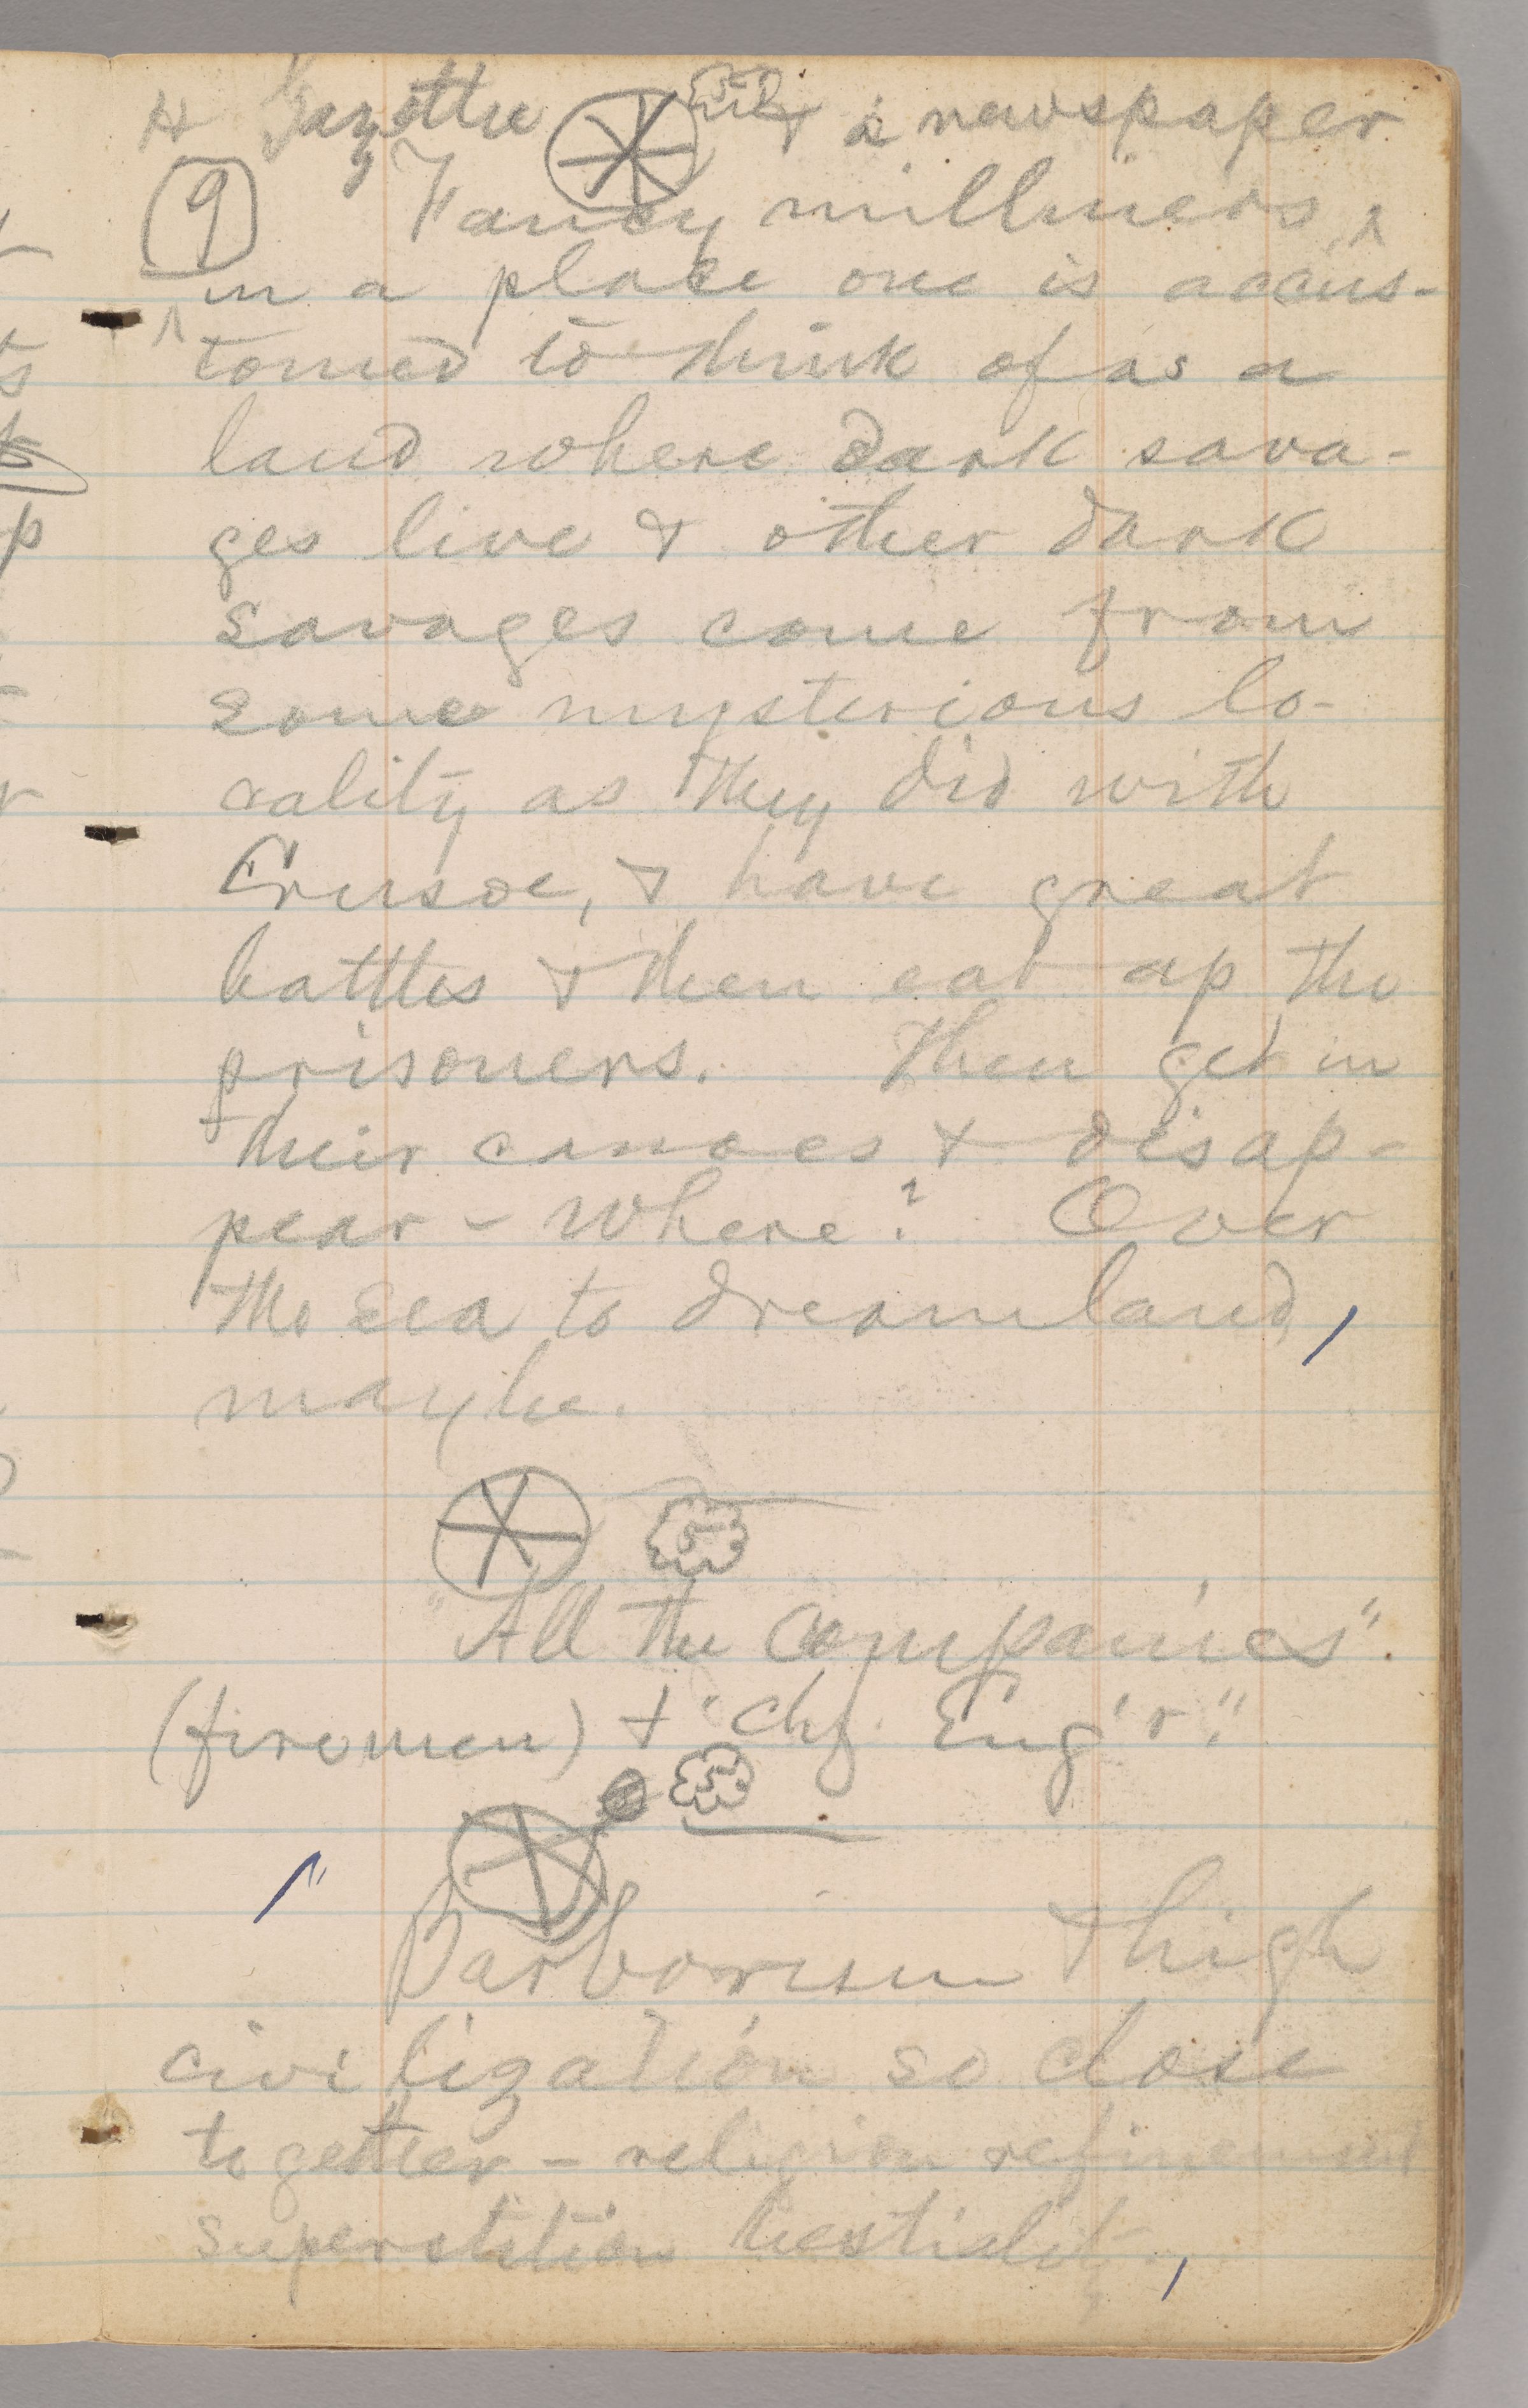 H Gazette 5 & a newspaper
9 Fancy milliners, ^
in a place one is accus-
tomed to think of as a
land where dark sava-
ges live & other dark
savages come from
some mysterious lo-
cality as they did with
Crusoe, & have great
battles & then eat up the
prisoners. Then get in
their canoes & disap-
pear – where? Over
the sea to dreamland,
maybe.
5
"All the Companies".
(firemen) & "Chf. Eng'r."
5
Barbarism & high
civilization so close
together – religion refinement
superstition bestiality,